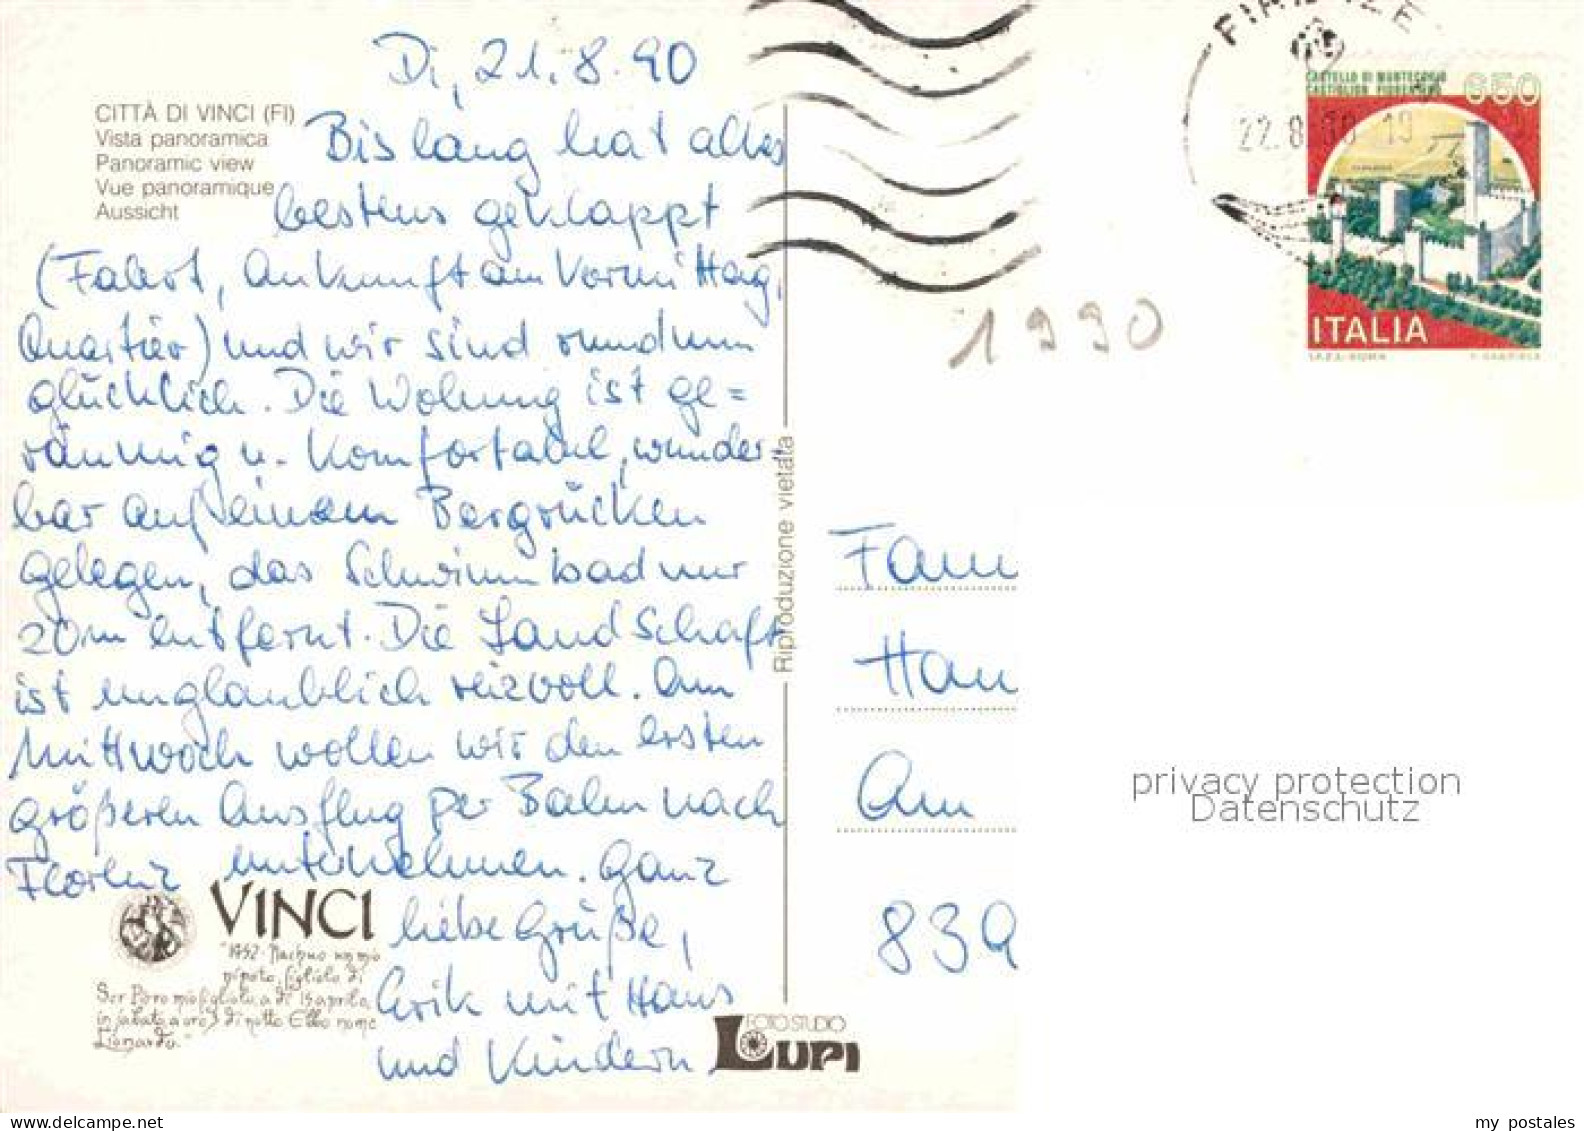 Di, 21.8.90
CITTÀ DI VINCI (FI)
Vista panoramica
Panoramic view
Vue panoramique
Aussicht
Bislang hat alles
bestens geklappt
(Fahrt, Ankunft am Vormittag,
Quartier) und wir sind rundum
glücklich. Die Wohnung ist ge=
räumig u. komfortabel, wunder-
bar auf einem Bergrücken
gelegen, das Schwimmbad nur
20m entfernt. Die Landschaft
ist unglaublich reizvoll. Am
Mittwoch wollen wir den ersten
größeren Ausflug per Bahn nach
Florenz unternehmen. Ganz
liebe Grüße,
Erik mit Hans
und Kindern
VINCI
"1452. Nachue un mio
nipote, figliolo di
Ser Piero mio figliolo, a dì 15 aprile,
in sabato a ore 3 di notte Ebbe nome
Lionardo."
Riproduzione vietata
FOTO STUDIO
LUPI
FIRENZE
22.8. 19
CASTELLO DI MONTECCHIO
CASTIGLION FIORENTINO
650
ITALIA
I.P.Z.S.-ROMA
1990
Fam
Han
Am
839
privacy protection
Datenschutz
my postales